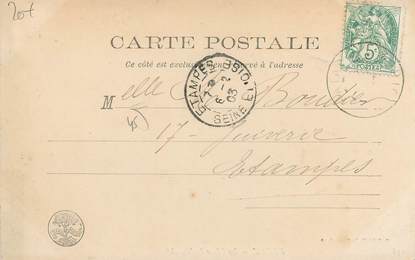 20f
CARTE POSTALE
Ce côté est exclusivement réservé à l'adresse
5c
POSTES
ETAMPES
6 -2
03
SEINE ET OISE
Melle Boudier
45
17 - Juiverie
Etampes